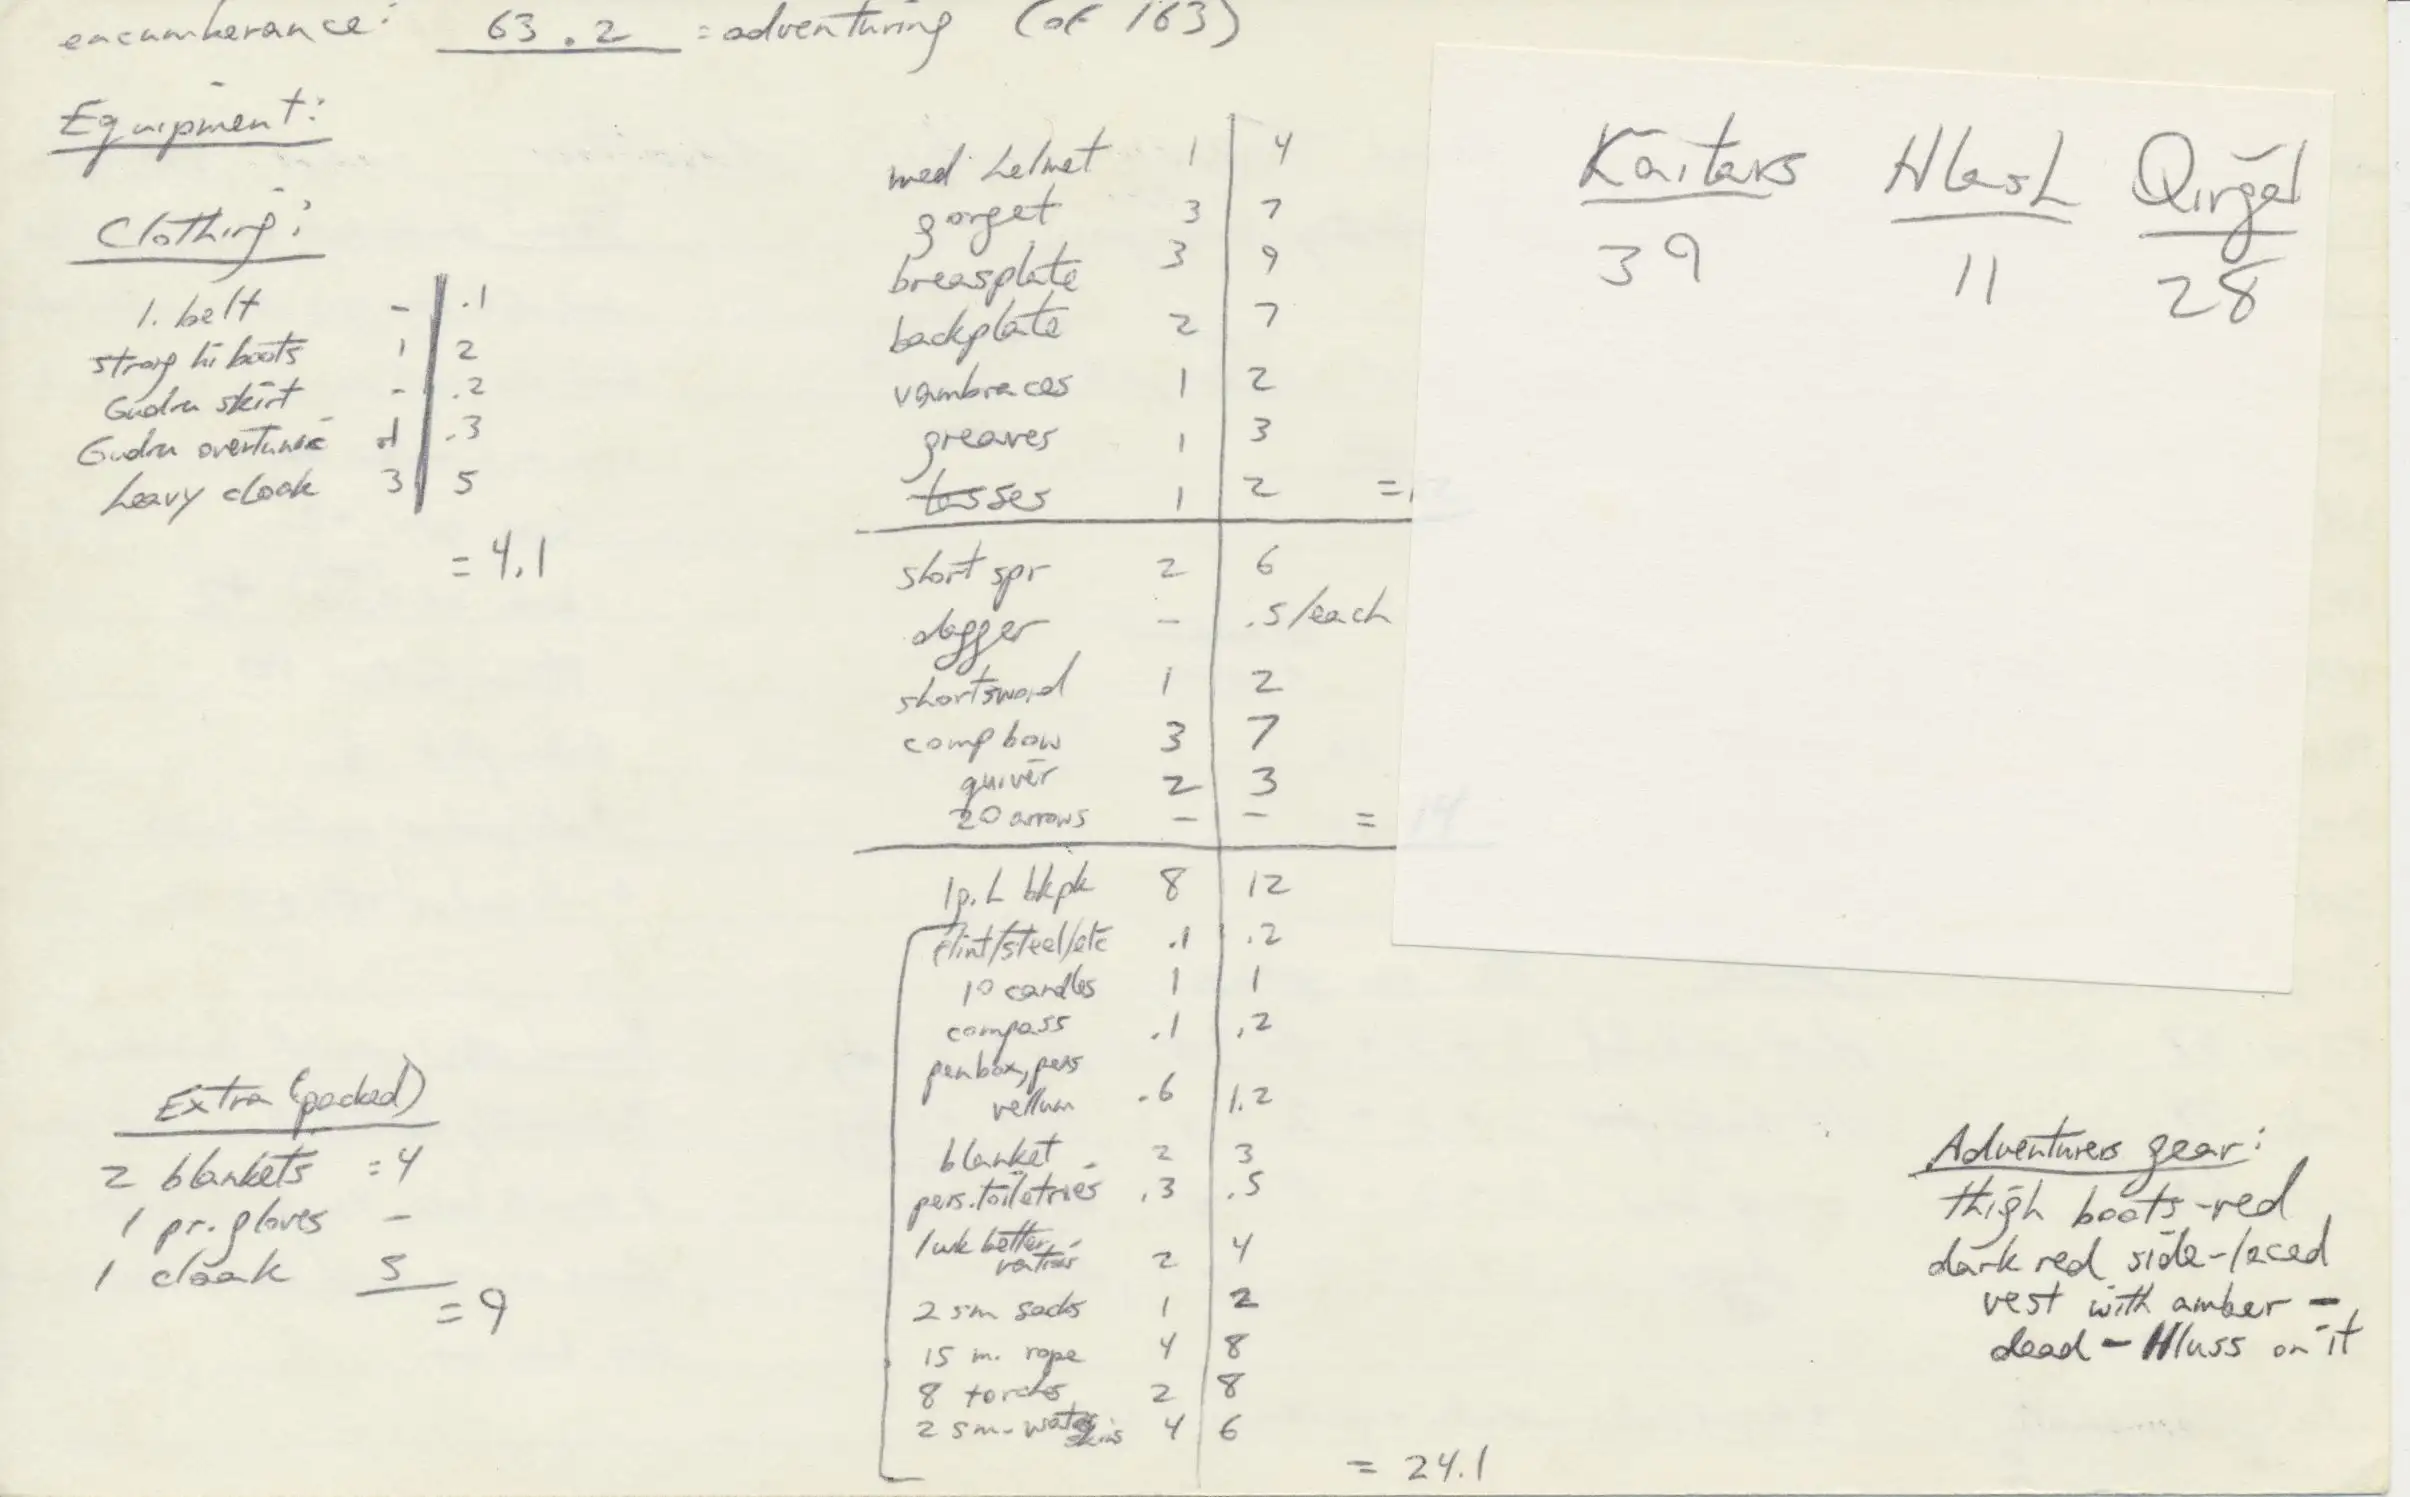 encumberance: 63.2 = adventuring (of 163)
Equipment:
Clothing:
1. belt - .1
strong hi boots 1 2
Gudru skirt - .2
Gudru overtunic .3
heavy cloak 3 5
= 4.1
Extra (packed)
2 blankets = 4
1 pr. gloves -
1 cloak 5
= 9
med helmet 1 4
gorget 3 7
breasplate 3 9
backplate 2 7
vambraces 1 2
greaves 1 3
tasses 1 2 =
short spr 2 6
dagger - .5/each
shortsword 1 2
comp bow 3 7
quiver 2 3
20 arrows - - = 14
1 p. L bkpk 8 12
flint/steel/etc .1 .2
10 candles 1 1
compass .1 .2
penbox, pens
vellum .6 1.2
blanket 2 3
pers. toiletries .3 .5
1 wk better
rations 2 4
2 sm sacks 1 2
15 m. rope 4 8
8 torches 2 8
2 sm. water
skins 4 6
= 24.1
Kaitars Hlash Qirgal
39 11 28
Adventurers gear:
thigh boots - red
dark red side-laced
vest with amber -
dead - Hluss on it